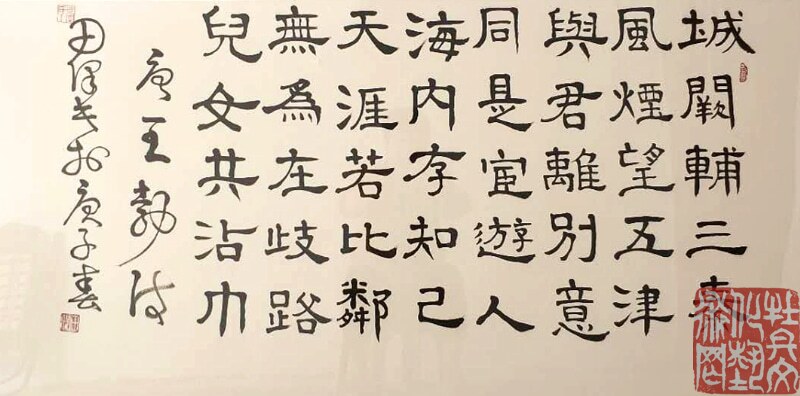 城闕輔三秦
風煙望五津
與君離別意
同是宦遊人
海内存知己
天涯若比鄰
無為在歧路
兒女共沾巾
唐王勃詩
田於庚子春